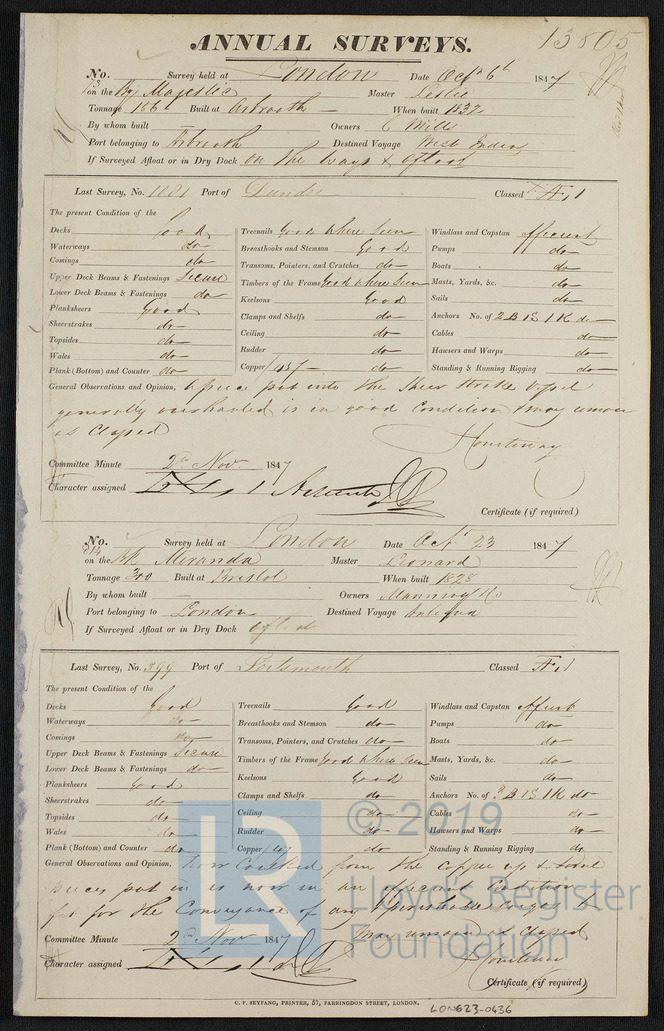 ANNUAL SURVEYS. 13805
No. Survey held at London Date Oct 6th 1847
73 on the Bg Majestic Master Leslie
Tonnage 186 Built at Arbroath When built 1832
By whom built — Owners Mills
Port belonging to Arbroath Destined Voyage West Indies
If Surveyed Afloat or in Dry Dock on the Ways & afloat
Last Survey, No. 1081 Port of Dundee Classed Æ 1
The present Condition of the
Decks Good Treenails Good where seen Windlass and Capstan efficient
Waterways do Breasthooks and Stemson Good Pumps do
Comings do Transoms, Pointers, and Crutches do Boats do
Upper Deck Beams & Fastenings Secure Timbers of the Frame good where seen Masts, Yards, &c. do
Lower Deck Beams & Fastenings do Keelsons Good Sails do
Planksheers Good Clamps and Shelfs do Anchors No. of 2 B 1 S 1 K do
Sheerstrakes do Ceiling do Cables do
Topsides do Rudder do Hawsers and Warps do
Wales do Copper do Standing & Running Rigging do
Plank (Bottom) and Counter do
General Observations and Opinion, A piece put into the Sheer Strake
generally overhauled is in good Condition & may remain
as Classed
Courtenay
Committee Minute 2nd Nov. 1847
Character assigned Æ 1
Certificate (if required)
No. Survey held at London Date Oct 23 1847
on the Bk Miranda Master Leonard
Tonnage 300 Built at Bristol When built 1828
By whom built — Owners Manning & Co
Port belonging to London Destined Voyage
If Surveyed Afloat or in Dry Dock afloat
Last Survey, No. 399 Port of Portsmouth Classed Æ 1
The present Condition of the
Decks Good Treenails Good Windlass and Capstan
Waterways do Breasthooks and Stemson do Pumps do
Comings do Transoms, Pointers, and Crutches do Boats do
Upper Deck Beams & Fastenings Secure Timbers of the Frame good where seen Masts, Yards, &c. do
Lower Deck Beams & Fastenings do Keelsons Good Sails do
Planksheers Good Clamps and Shelfs do Anchors No. of 3 B 1 S 1 K do
Sheerstrakes do Ceiling do Cables do
Topsides do Rudder do Hawsers and Warps do
Wales do Copper do Standing & Running Rigging do
Plank (Bottom) and Counter do
General Observations and Opinion, now Caulked from the copper up &
pieces put in is now in an efficient Condition
fit for the Conveyance of any Perishable Cargo &
may remain as Classed
Courtenay
Committee Minute 2nd Nov 1847
Character assigned Æ 1
Certificate (if required)
C. F. SEYFANG, PRINTER, 57, FARRINGDON STREET, LONDON.
LON623-0436
LR © 2019
Lloyd's Register
Foundation